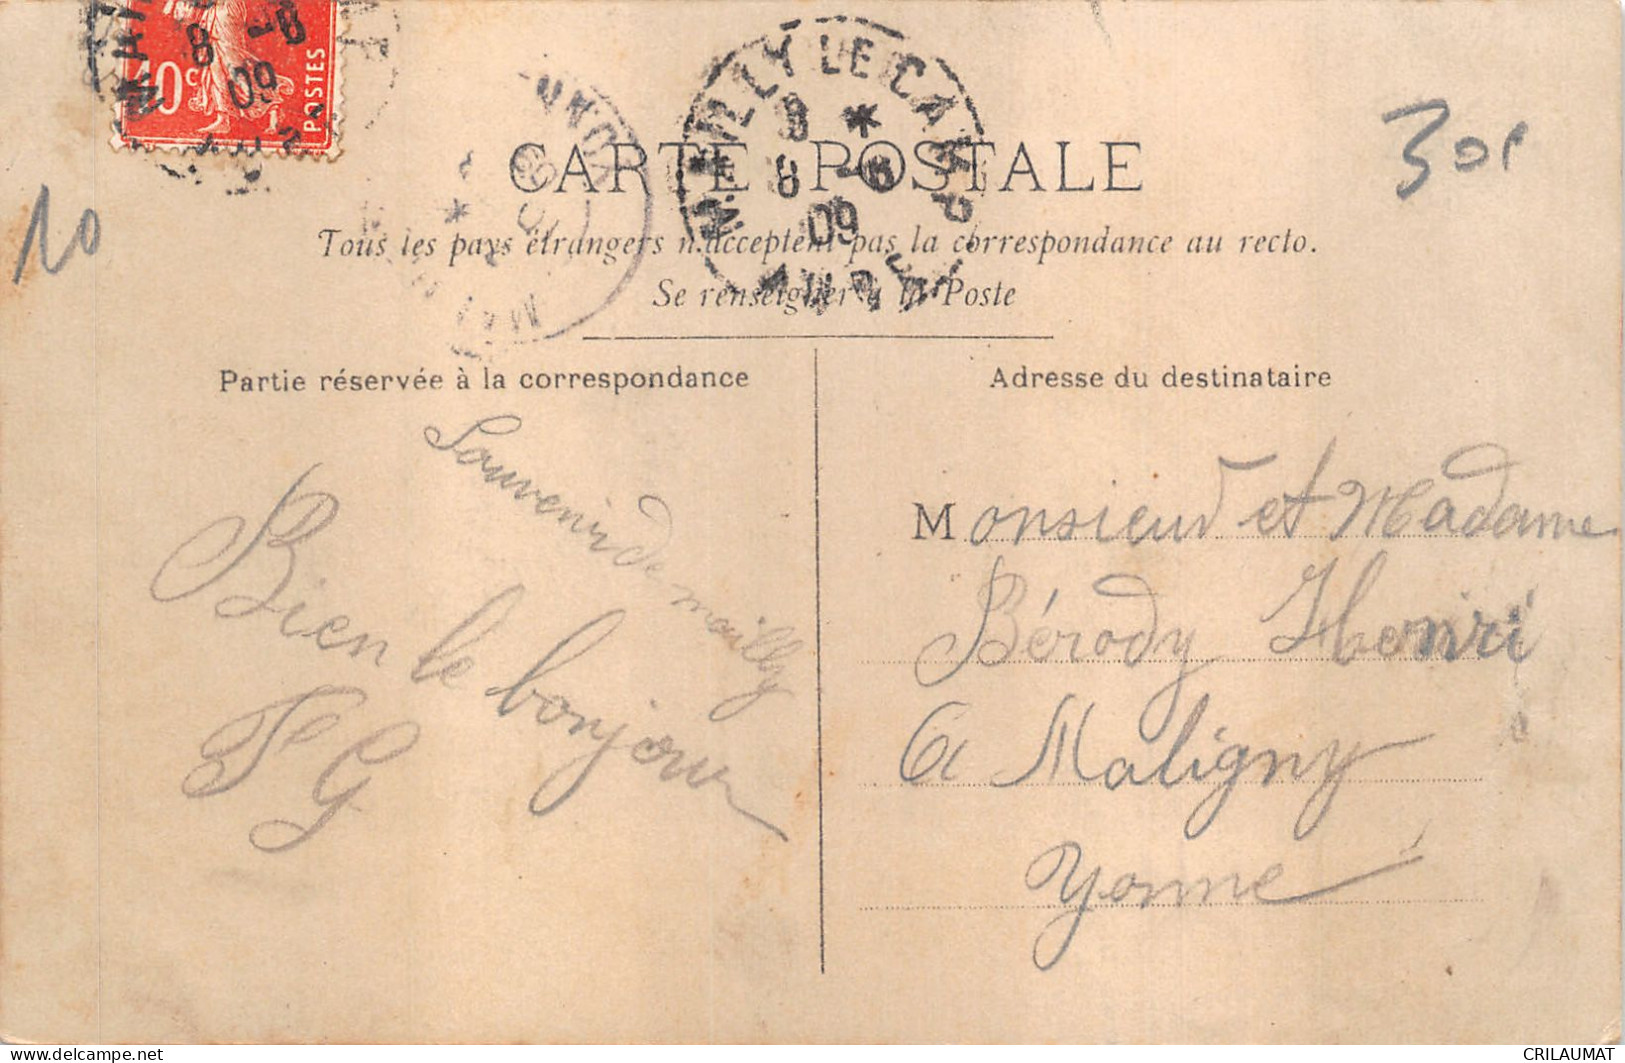 10c
POSTES
8
-8
09
MAILLY LE CAMP
8 *
8 -8
09
AUBE
YONNE
09
*
10
30f
CARTE POSTALE
Tous les pays étrangers n'acceptent pas la correspondance au recto.
Se renseigner à la Poste
Partie réservée à la correspondance
Souvenir de mailly
Bien le bonjour
G
Adresse du destinataire
Monsieur et Madame
Bérody Henri
A Maligny
Yonne
CRILAUMAT